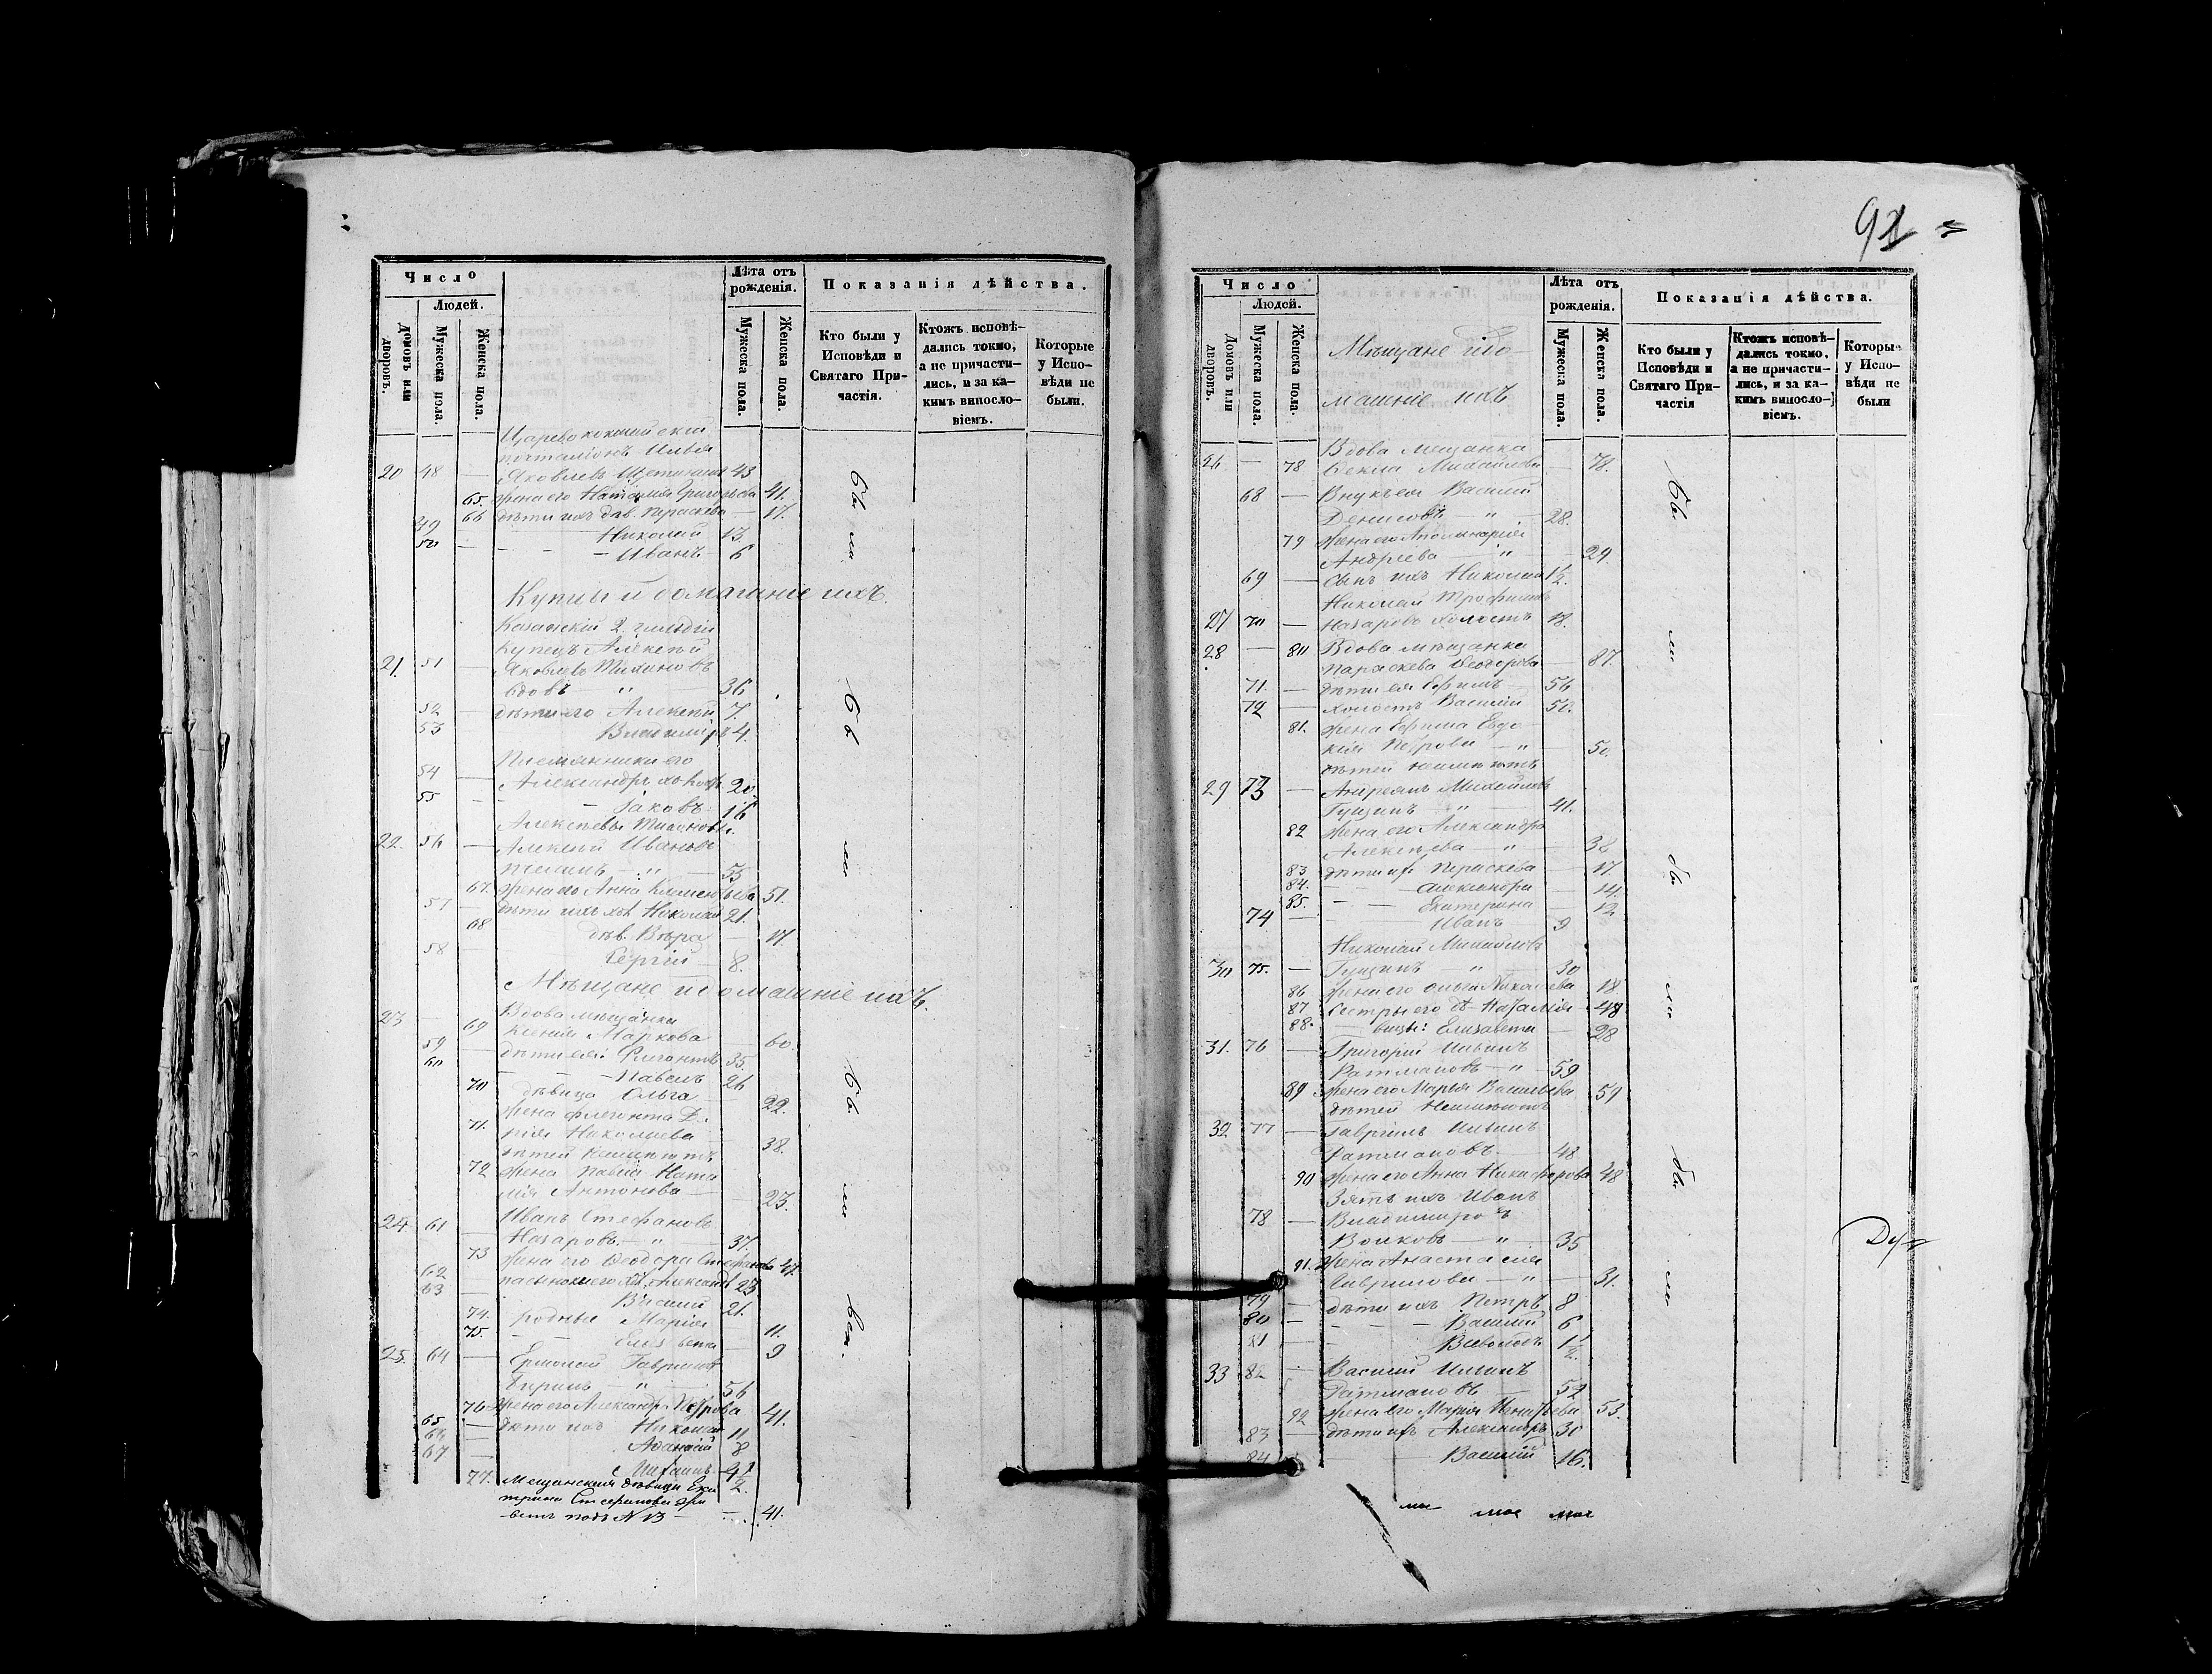 Число
Лѣта отъ рожденія.
Показанія дѣйства.
Людей.
Домовъ или дворовъ.
Мужеска пола.
Женска пола.
Мужеска пола.
Женска пола.
Кто были у Исповѣди и Святаго Причастія.
Ктожъ исповѣдались токмо, а не причастились, и за какимъ винословіемъ.
Которые у Исповѣди не были.
20 48 — Яковлевъ 43
65. жена его Наталия Григорьева 41.
66 дѣти ихъ дѣв. Параскева — 17.
49 Николай 13.
50 — Иванъ 6
Купцы и домашніе ихъ.
Казанскій 2. гильдіи
купецъ Алексѣй
21. 51 Яковлевъ Тихоновъ
вдовъ — " — 36
52 — дѣти его Алексѣй 7.
53 Владиміръ 4.
Племянники его
54 — Александръ 20.
55 — Іаковъ 16
Алексѣевы Тихоновы.
22. 56 — Алексѣй Ивановъ
— " — 55
67. жена его Анна 51.
57 — дѣти ихъ Николай 21.
68 дѣв. Вѣра — 17
58 — Сергій — 8.
Мѣщане и домашніе ихъ.
23 — Вдова мѣщанка
69 Ксенія Маркова — 60.
59 — дѣти ея: Флегонтъ 35.
60 — Павелъ 26
70 дѣвица Ольга — 22.
жена Флегонта Да-
71. рія Николаева — 38.
дѣтей неимѣютъ
72 жена Павла Ната-
лія Антонова — 23.
24. 61 — Иванъ Стефановъ
Назаровъ — " — 37.
73 жена его Феодора Стефанова 47.
62 — пасынки его Александръ 23
63 — Василій 21.
74. родныя Марія — 11.
75. — — Елизавета — 9
25. 64 — Ермолай Гавриловъ
— " — 56
76 жена его Александра Петрова 41.
65 — дѣти ихъ Николай 11
66 — Аѳанасій 8
67 —
77. Мещанская дѣвица Ека-
терина Стефанова
подъ N 13 — 41.
91
Число
Лѣта отъ рожденія.
Показанія дѣйства.
Людей.
Домовъ или дворовъ.
Мужеска пола.
Женска пола.
Мѣщане и до-
машніе ихъ
Мужеска пола.
Женска пола.
Кто были у Исповѣди и Святаго Причастія
Ктожъ исповѣдались токмо, а не причастились, и за какимъ винословіемъ.
Которые у Исповѣди не были
Вдова мещанка
26 — 78 Ѳекла Михайлова — 78.
68 — Внукъ ея Василій
Денисовъ — " — 28.
79 жена его Аполинарія
Андреева — " — 29.
69 — сынъ ихъ Николай 1½.
Николай Трофимовъ
27 70 — Назаровъ холостъ 18.
28 — 80 Вдова мѣщанка
Параскева Ѳеодорова — 87.
71. — дѣти ея Ефимъ — 56
72 — холостъ Василій 50.
81. жена Ефима Евдо-
кія Петрова — " — 50.
дѣтей неимѣютъ
29 73 — Андреянъ Михайловъ
Гущинъ " — 41.
82 жена его Александра
Алексѣева — " — 36
83 дѣти ихъ Параскева — 17.
84. — Александра — 14.
85. — — Екатерина — 12
74 — Иванъ 9
Николай Михайловъ
30 75. — Гущинъ — " — 30
86 жена его Ольга Николаева 18
87 Сестры его дѣ- Наталія — 48
88. — вицы: Елизавета — 28
31. 76 — Григорій Ильинъ
Ратмановъ — " — 59
89 жена его Марья Васильева 59
дѣтей неимѣютъ
32 77 — Гавріилъ Ильинъ
Ратмановъ — 48
90 жена его Анна Никифорова 48
Зять ихъ Иванъ
78 — Владиміровъ
Волковъ — " — 35
91. жена Анастасія
Гаврилова — " — 31.
79 — дѣти ихъ Петръ 8
80 — — — Василій 6
81 — Всеволодъ 1½.
33 82 — Василій Ильинъ
Ратмановъ — 52
92 жена его Марія 53.
83 — дѣти ихъ Александръ 30
84 — Василій 16.